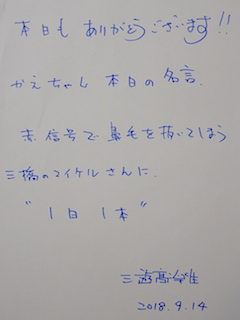 本日も ありがとうございます!!
かえちゃん 本日の名言.
赤信号で鼻毛を抜いてしまう
三橋のマイケルさんに.
"1日1本"
三遊亭
2018.9.14